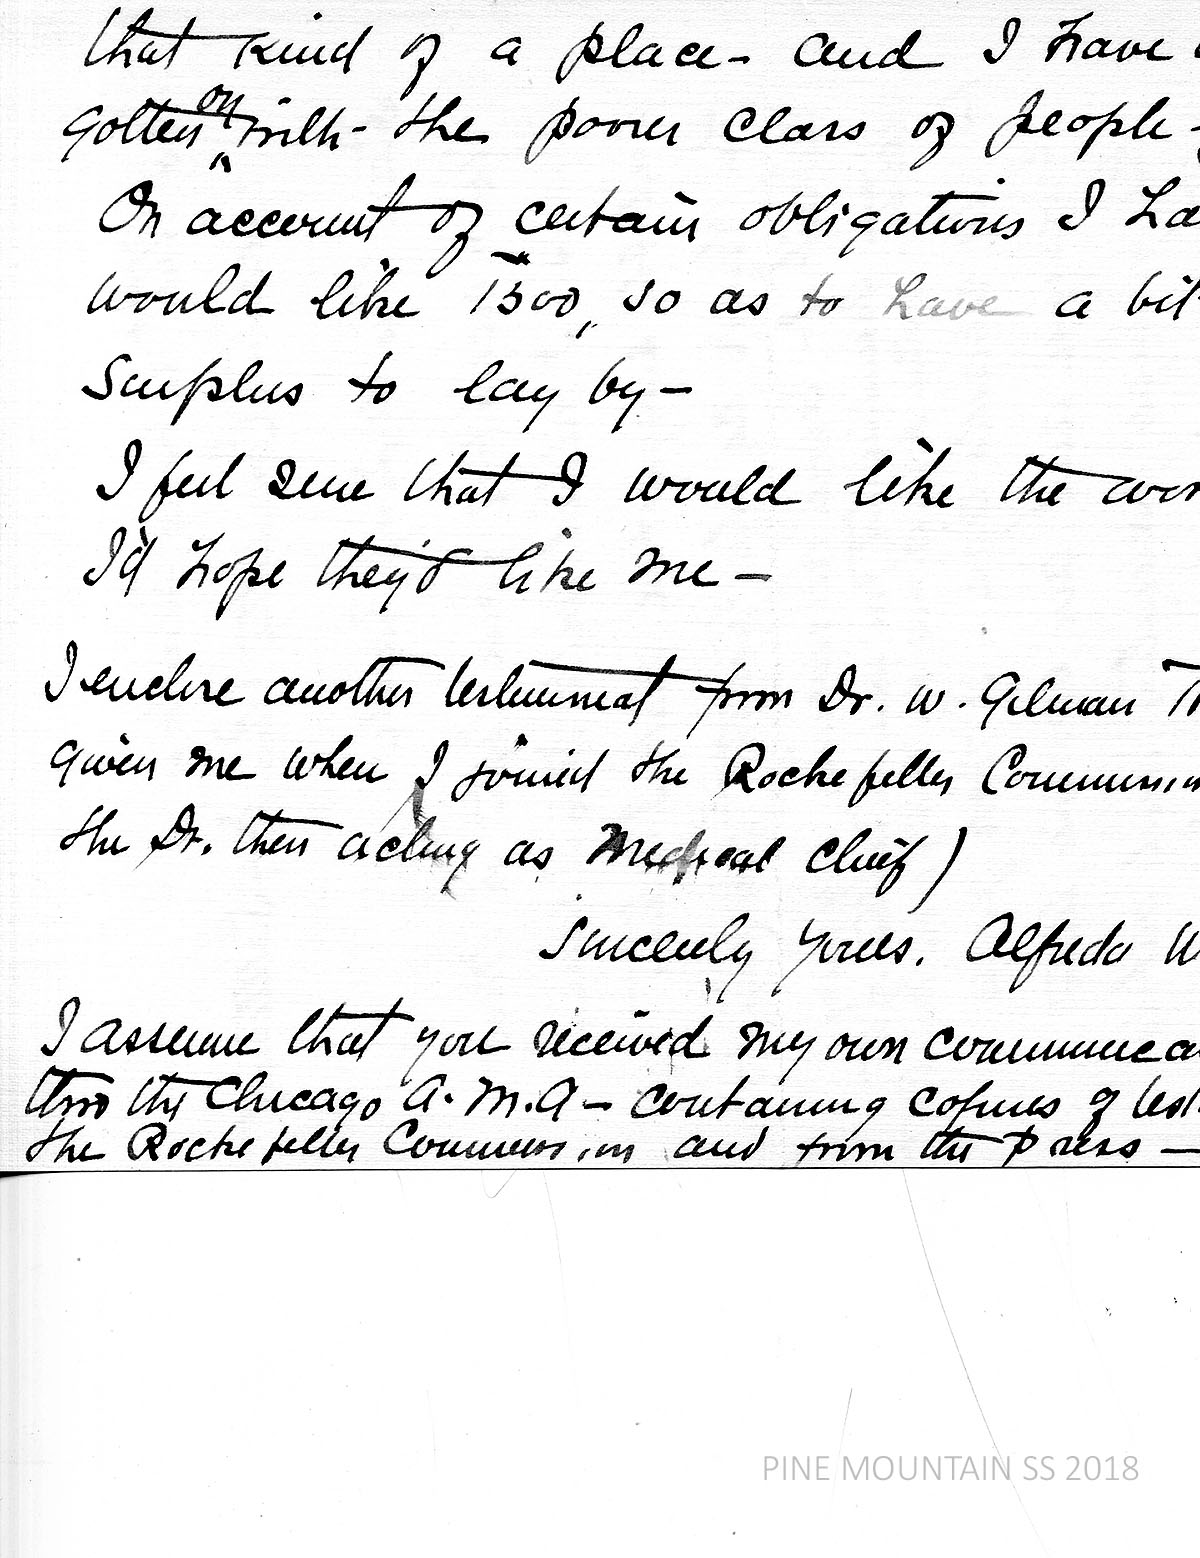 that kind of a place - and I have
gotten on with - the poorer class of people -
On account of certain obligations I ha
would like 1500, so as to have a bit
surplus to lay by -
I feel sure that I would like the wor
I'd hope they'd like me -
I enclose another testimonial from Dr. W. Gilman T
given me when I joined the Rockefeller Commissi
the Dr. then acting as Medical Chief)
Sincerely yours. Alfreda W
I assume that you received my own communica
thro the Chicago A.M.A - containing copies of test
the Rockefeller Commission and from the press -
PINE MOUNTAIN SS 2018